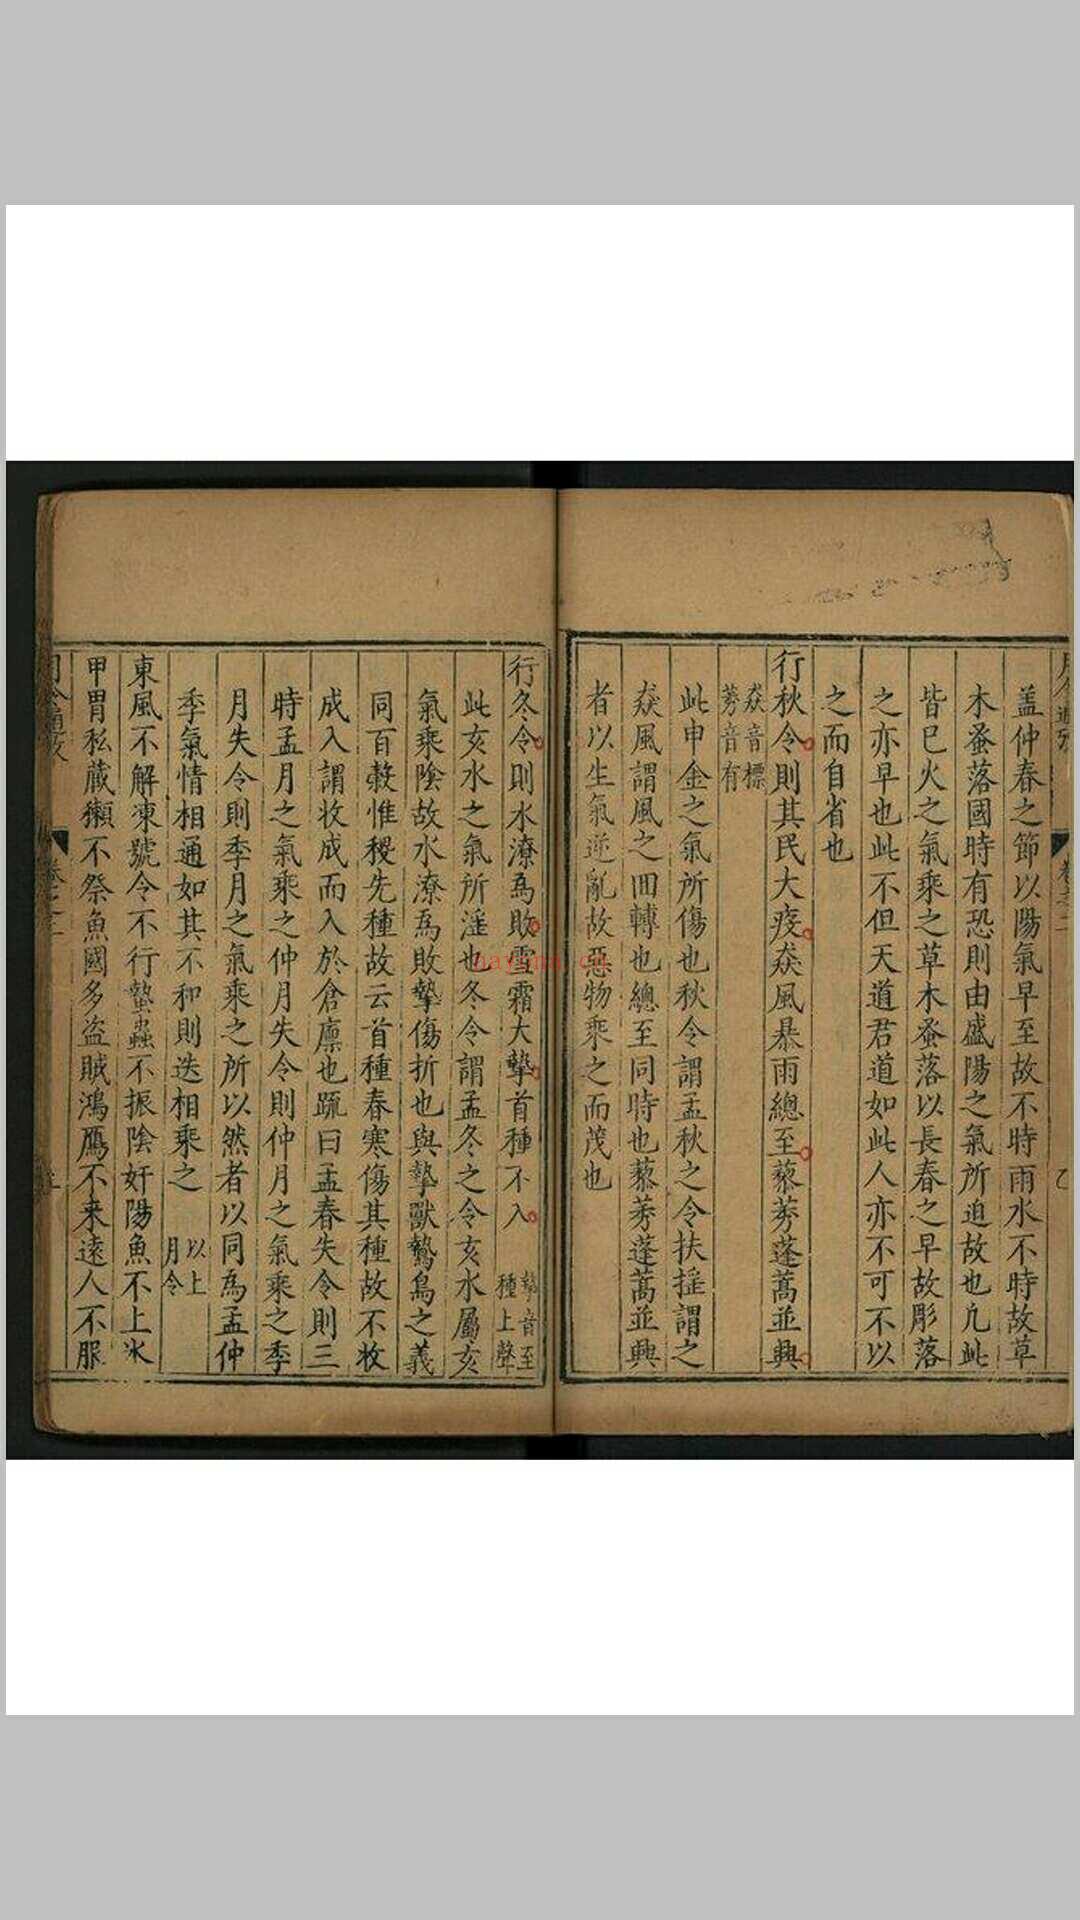 盖仲春之節以陽氣早至故不時雨水不時故草
木蚤落國時有恐則由盛陽之氣所迫故也凡此
皆巳火之氣乘之草木蚤落以長春之早故彫落
之亦早也此不但天道君道如此人亦不可不以
之而自省也
行秋令則其民大疫猋風暴雨總至藜莠蓬蒿並興
猋音標
莠音有
此申金之氣所傷也秋令謂孟秋之令扶揺謂之
猋風謂風之囬轉也總至同時也藜莠蓬蒿並興
者以生氣逆亂故惡物乘之而茂也
行冬令則水潦為敗雪霜大摯首種不入
摯音至
種上聲
此亥水之氣所淫也冬令謂孟冬之令亥水屬亥
氣乘陰故水潦為敗摯傷折也與摯獸鷙鳥之義
同百穀惟稷先種故云首種春寒傷其種故不收
成入謂收成而入於倉廪也疏曰孟春失令則三
時孟月之氣乘之仲月失令則仲月之氣乘之季
月失令則季月之氣乘之所以然者以同為孟仲
季氣情相通如其不和則迭相乘之
以上
月令
東風不解凍號令不行蟄蟲不振陰奸陽魚不上氷
甲冑私藏獺不祭魚國多盗賊鴻鴈不来遠人不服
月令通攷
卷之二
nayona.cn